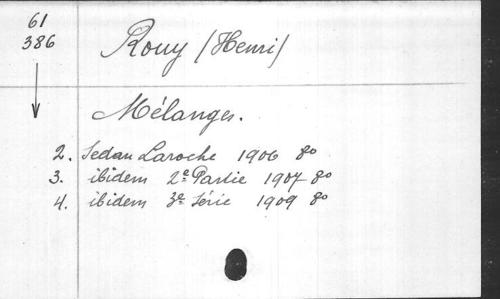 61
386
Rouy (Henri)
Mélanges.
2. Sedan Laroche 1906 8º
3. ibidem 2e Partie 1907 8º
4. ibidem 3e Série 1909 8º